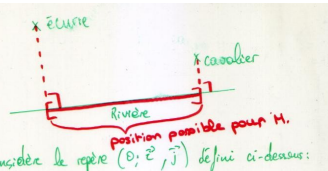 écurie
cavalier
Rivière
position possible pour M.
considère le repère (O; i, j) défini ci-dessous: